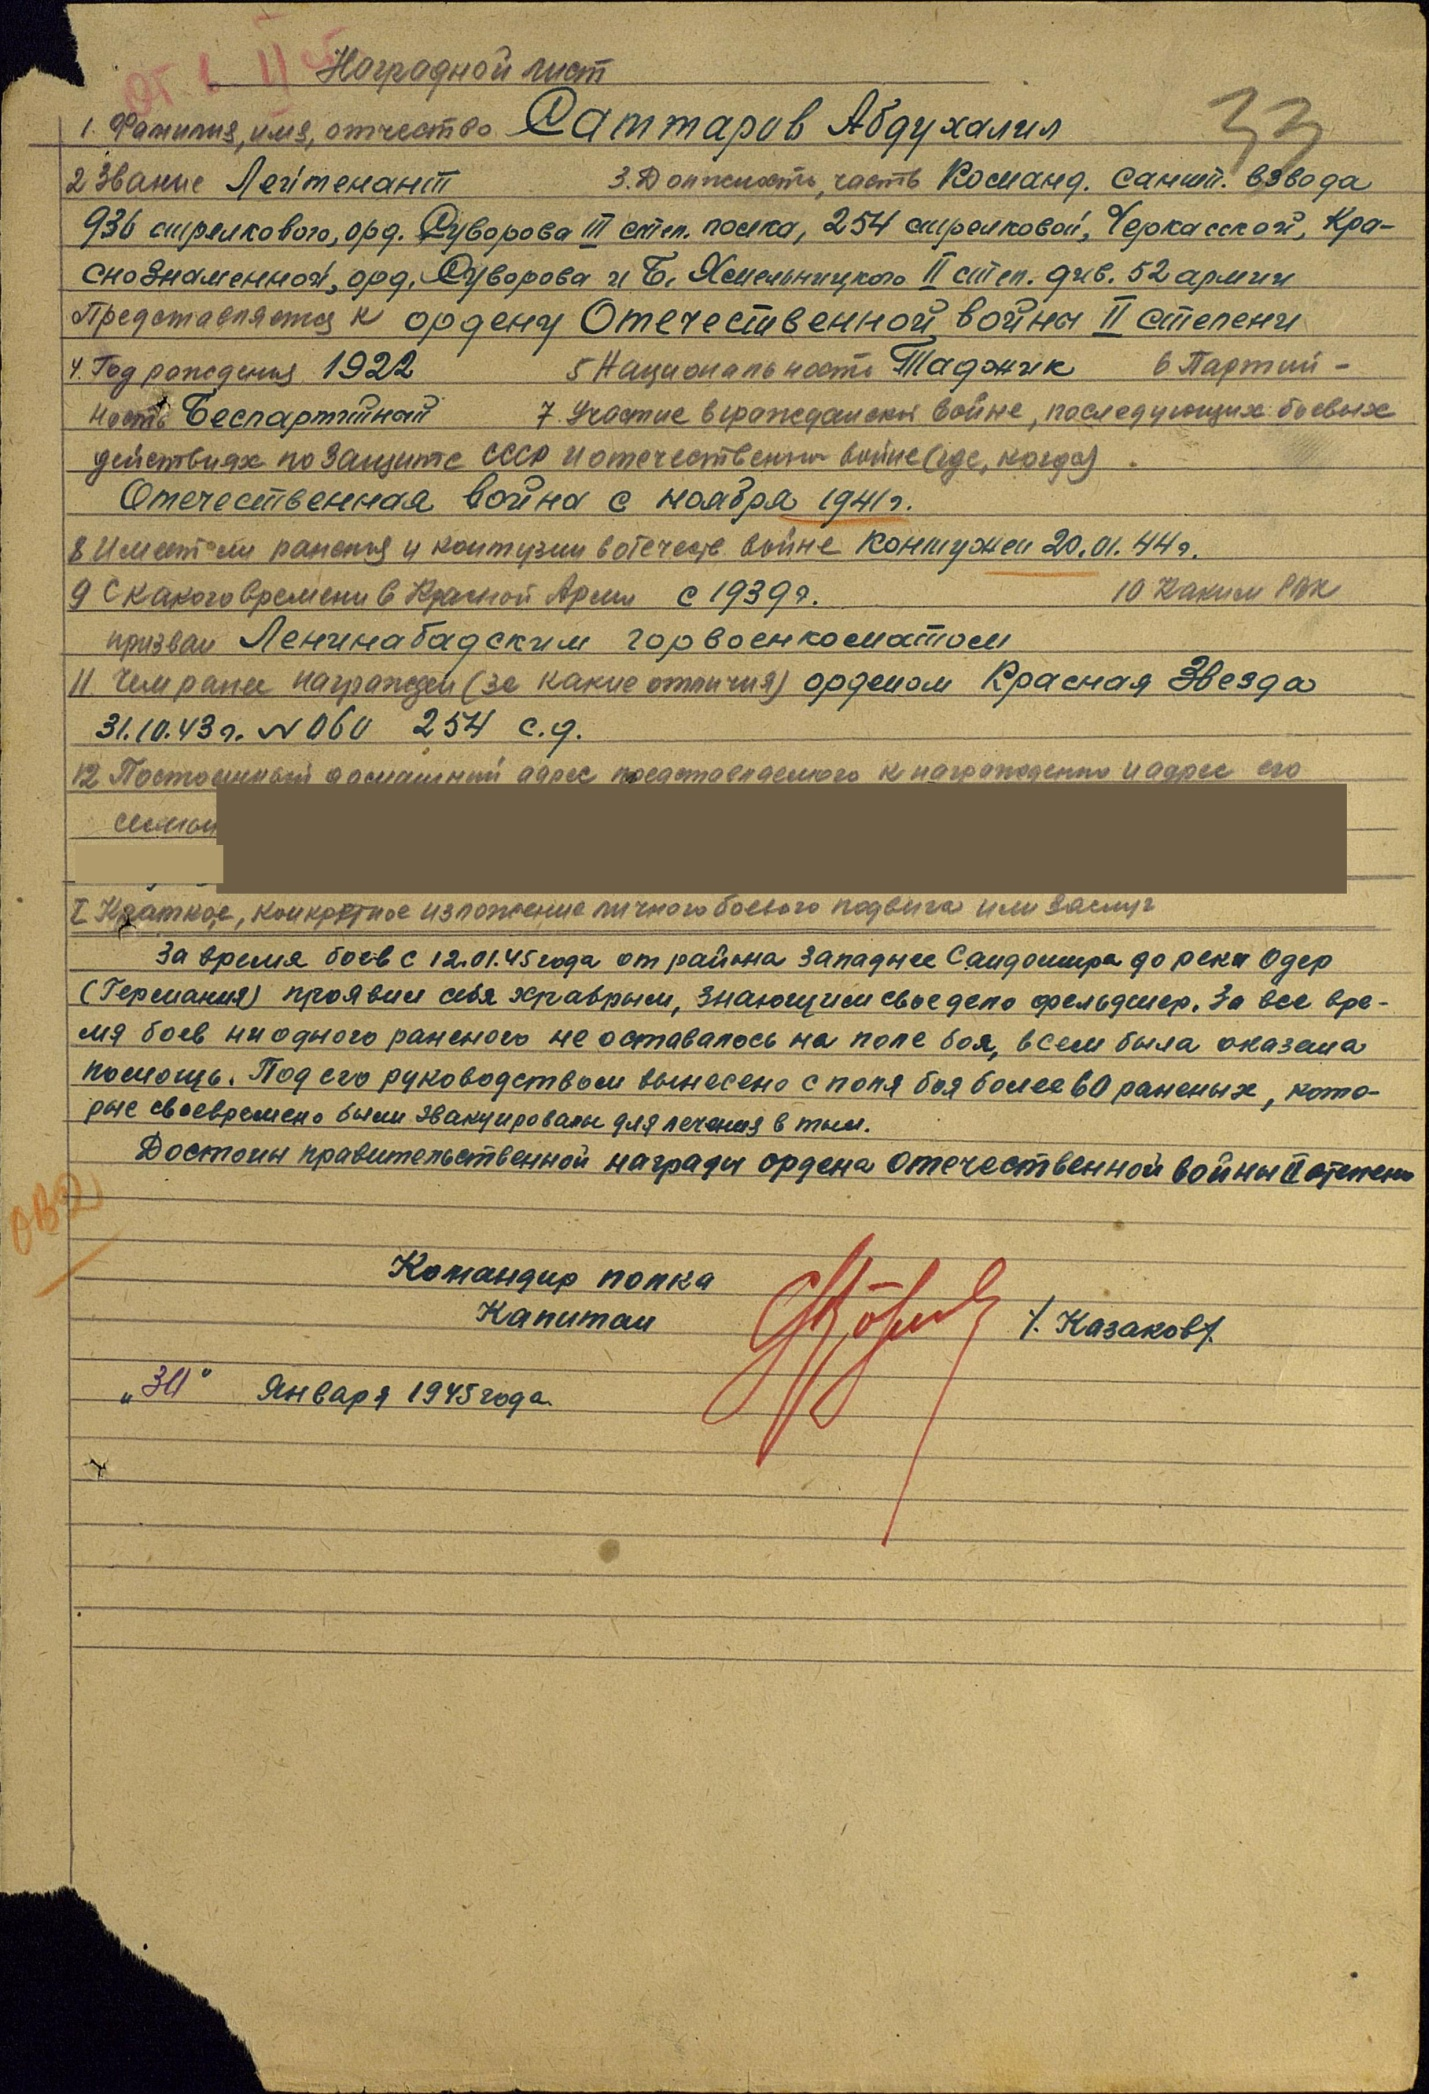 Наградной лист
33
1. Фамилия, имя, отчество Саттаров Абдухалил
2 Звание Лейтенант 3. Должность, часть Команд. санит. взвода
936 стрелкового, орд. Суворова III степ. полка, 254 стрелковой, Черкасской, Кра-
снознаменной, орд. Суворова и Б. Хмельницкого II степ. див. 52 армии
Представляется к ордену Отечественной войны II степени
4. Год рождения 1922 5 Национальность Таджик 6 Партий-
ность Беспартийный 7. Участие в гражданской войне, последующих боевых
действиях по защите СССР и отечественной войне (где, когда)
Отечественная война с ноября 1941 г.
8 Имеет ли ранения и контузии в отечеств. войне контужен 20.01.44 г.
9 С какого времени в Красной Армии с 1939 г. 10 Каким РВК
призван Ленинабадским горвоенкоматом
11 Чем ранее награжден (за какие отличия) орденом Красная Звезда
31.10.43 г. № 060 254 с.д.
12 Постоянный домашний адрес представляемого к награждению и адрес его
семьи
I Краткое, конкретное изложение личного боевого подвига или заслуг
За время боев с 12.01.45 года от района западнее Сандомира до реки Одер
(Германия) проявил себя храбрым, знающим свое дело фельдшер. За все вре-
мя боев ни одного раненого не оставалось на поле боя, всем была оказана
помощь. Под его руководством вынесено с поля боя более 60 раненых, кото-
рые своевремено были эвакуированы для лечения в тыл.
Достоин правительственной награды ордена Отечественной войны II степени
ОВ2
Командир полка
Капитан /. Казаков/.
"30" Января 1945 года.